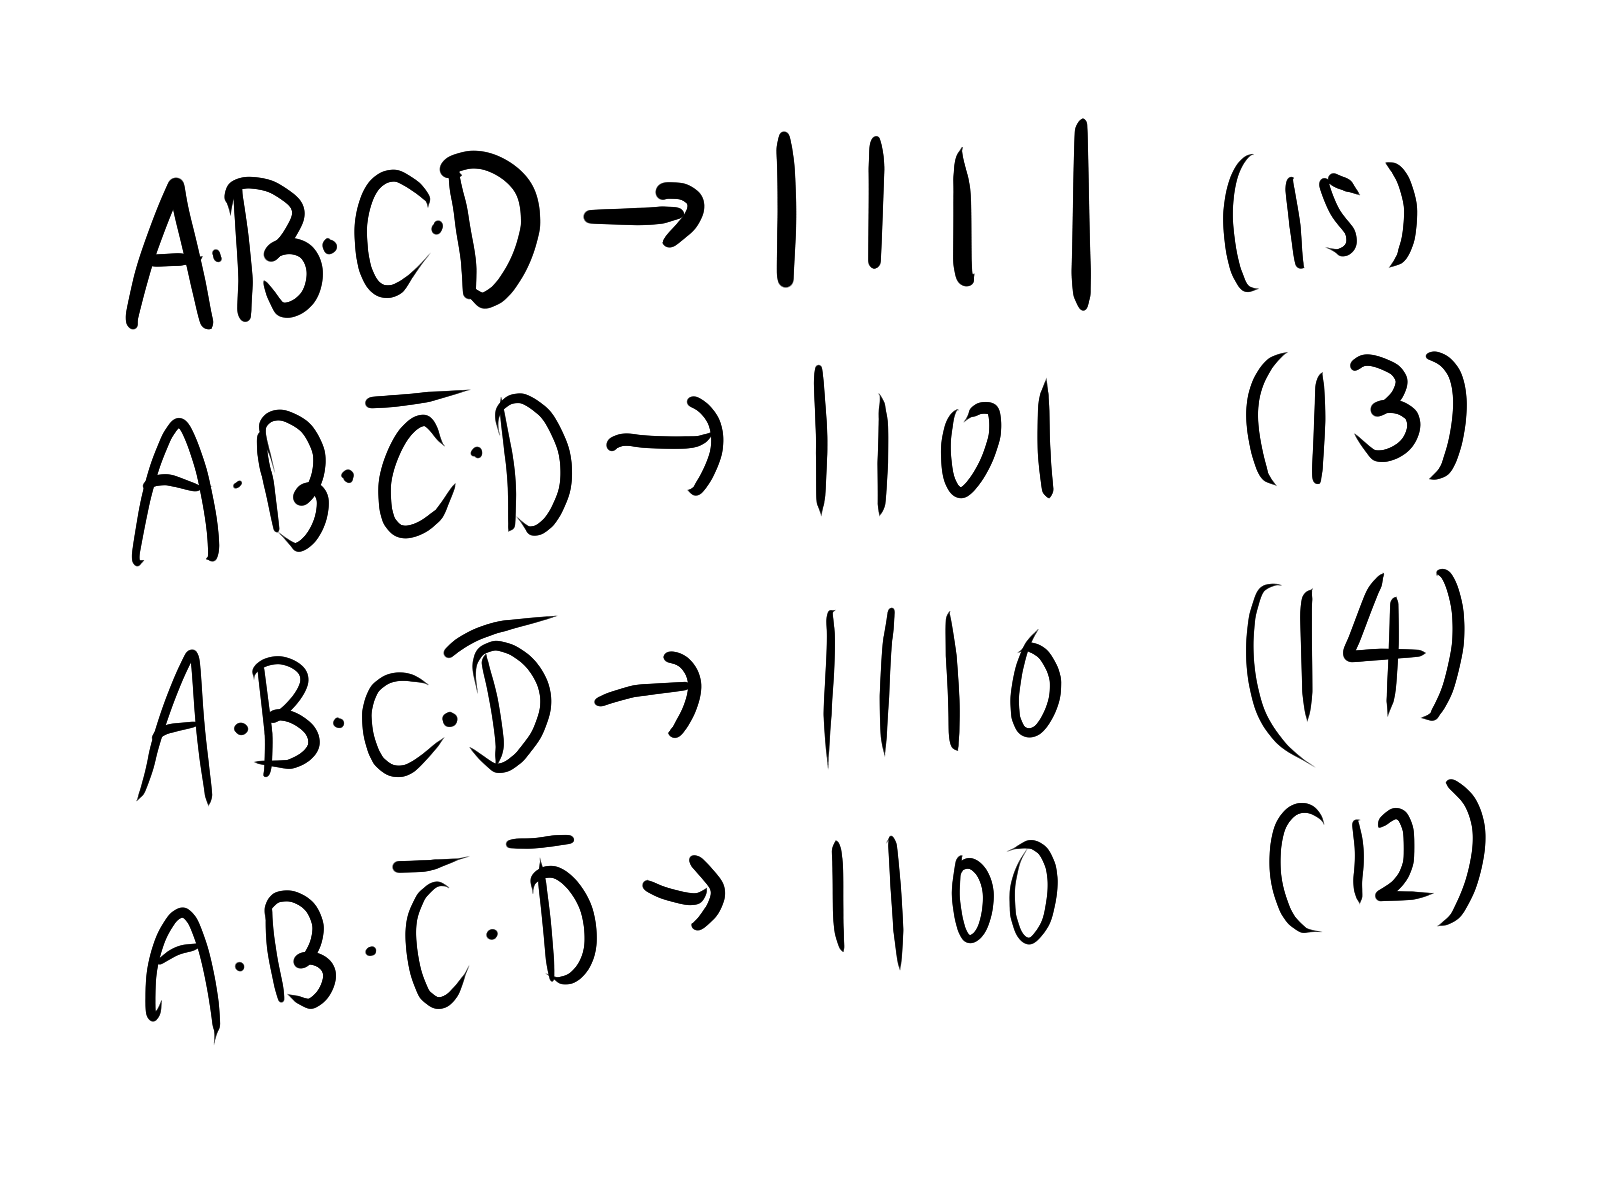 A·B·C·D → 1111 (15)
A·B·C̅·D → 1101 (13)
A·B·C·D̅ → 1110 (14)
A·B·C̅·D̅ → 1100 (12)